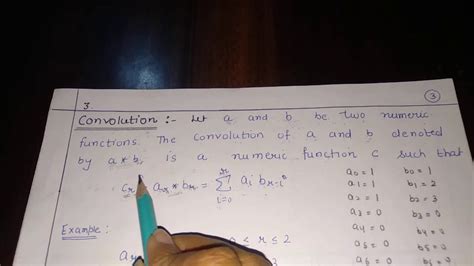 3
3
Convolution :- Let a and b be two numeric
functions. The convolution of a and b denoted
by a * b, is a numeric function c such that
cr = ar * br = Σ r i=0 ai br-i
a0 = 1 b0 = 1
a1 = 1 b1 = 2
a2 = 1 b2 = 3
a3 = 0 b3 = 0
a4 = 0 b4 = 0
a5 = 0 b5 = 0
Example :
ar 0 ≤ r ≤ 2